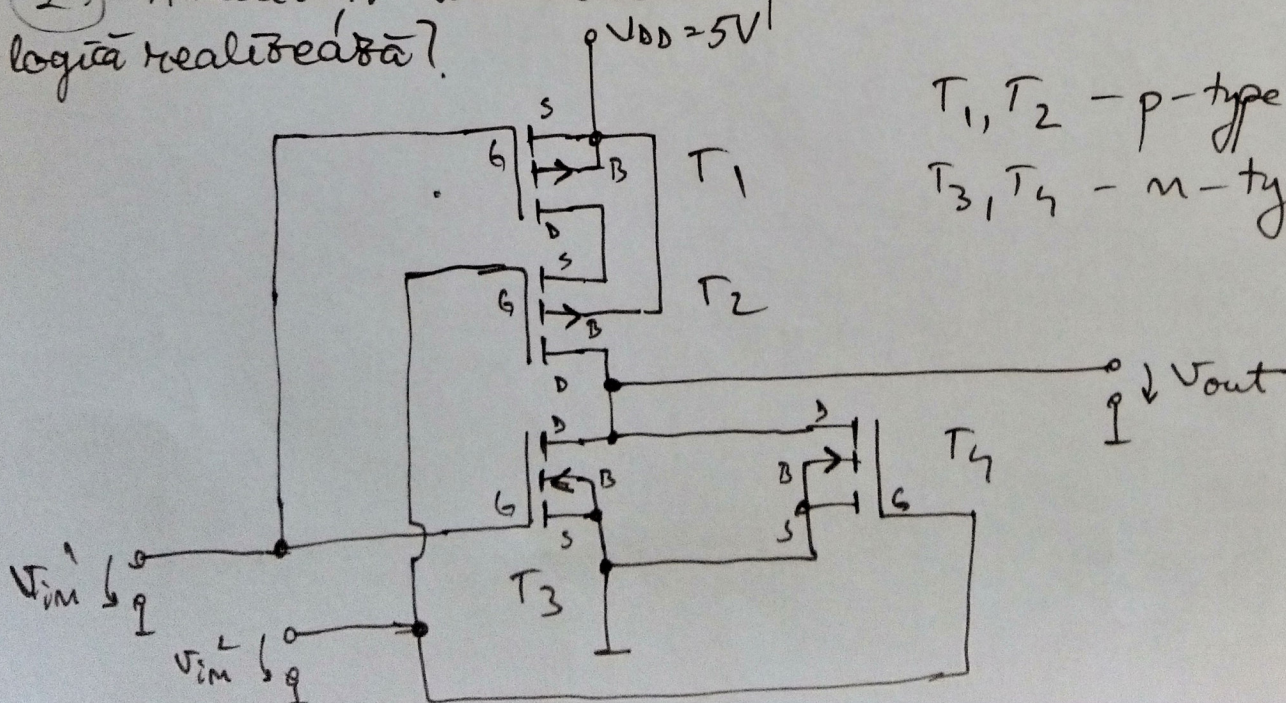 2.
logică realizează?
VDD=5V
T1, T2 - p-type
T3, T4 - n-ty
S
G
B
T1
D
S
G
B
T2
D
Vout
D
G
B
S
T3
D
B
S
G
T4
Vin1
Vin2